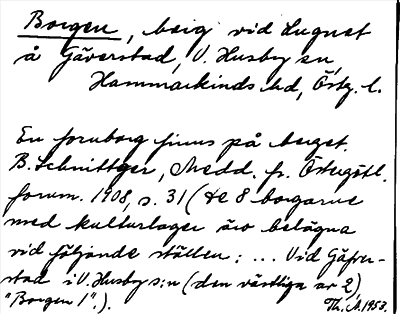 Borgen, berg vid Lugnet
å Gäverstad, V. Husby sn,
Hammarkinds hd, Östg. l.
En fornborg finns på berget.
B. Schnittger, Medd. fr. Östergötl.
fornm. 1908, s. 31 (de 8 borgarne
med kulturlager äro belägna
vid följande ställen: ... Vid Gäfver-
stad i V. Husby s:n (den västliga av 2,
"Borgen 1".).
Th. A. 1953.